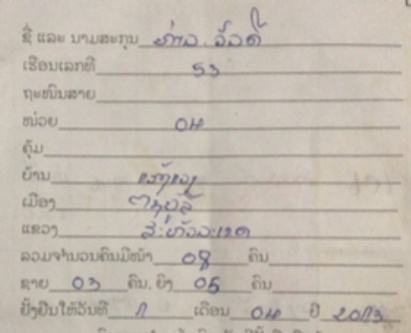 ຊື່ ແລະ ນາມສະກຸນ ທ່ານ. ວັນດີ
ເຮືອນເລກທີ 53
ຖະໜົນສາຍ
ໜ່ວຍ 04
ຄຸ້ມ
ບ້ານ
ເມືອງ
ແຂວງ ສະຫວັນນະເຂດ
ລວມຈຳນວນຄົນມີໜ້າ 08 ຄົນ
ຊາຍ 03 ຄົນ. ຍິງ 05 ຄົນ
ຢັ້ງຢືນໃຫ້ວັນທີ ເດືອນ 04 ປີ 2013